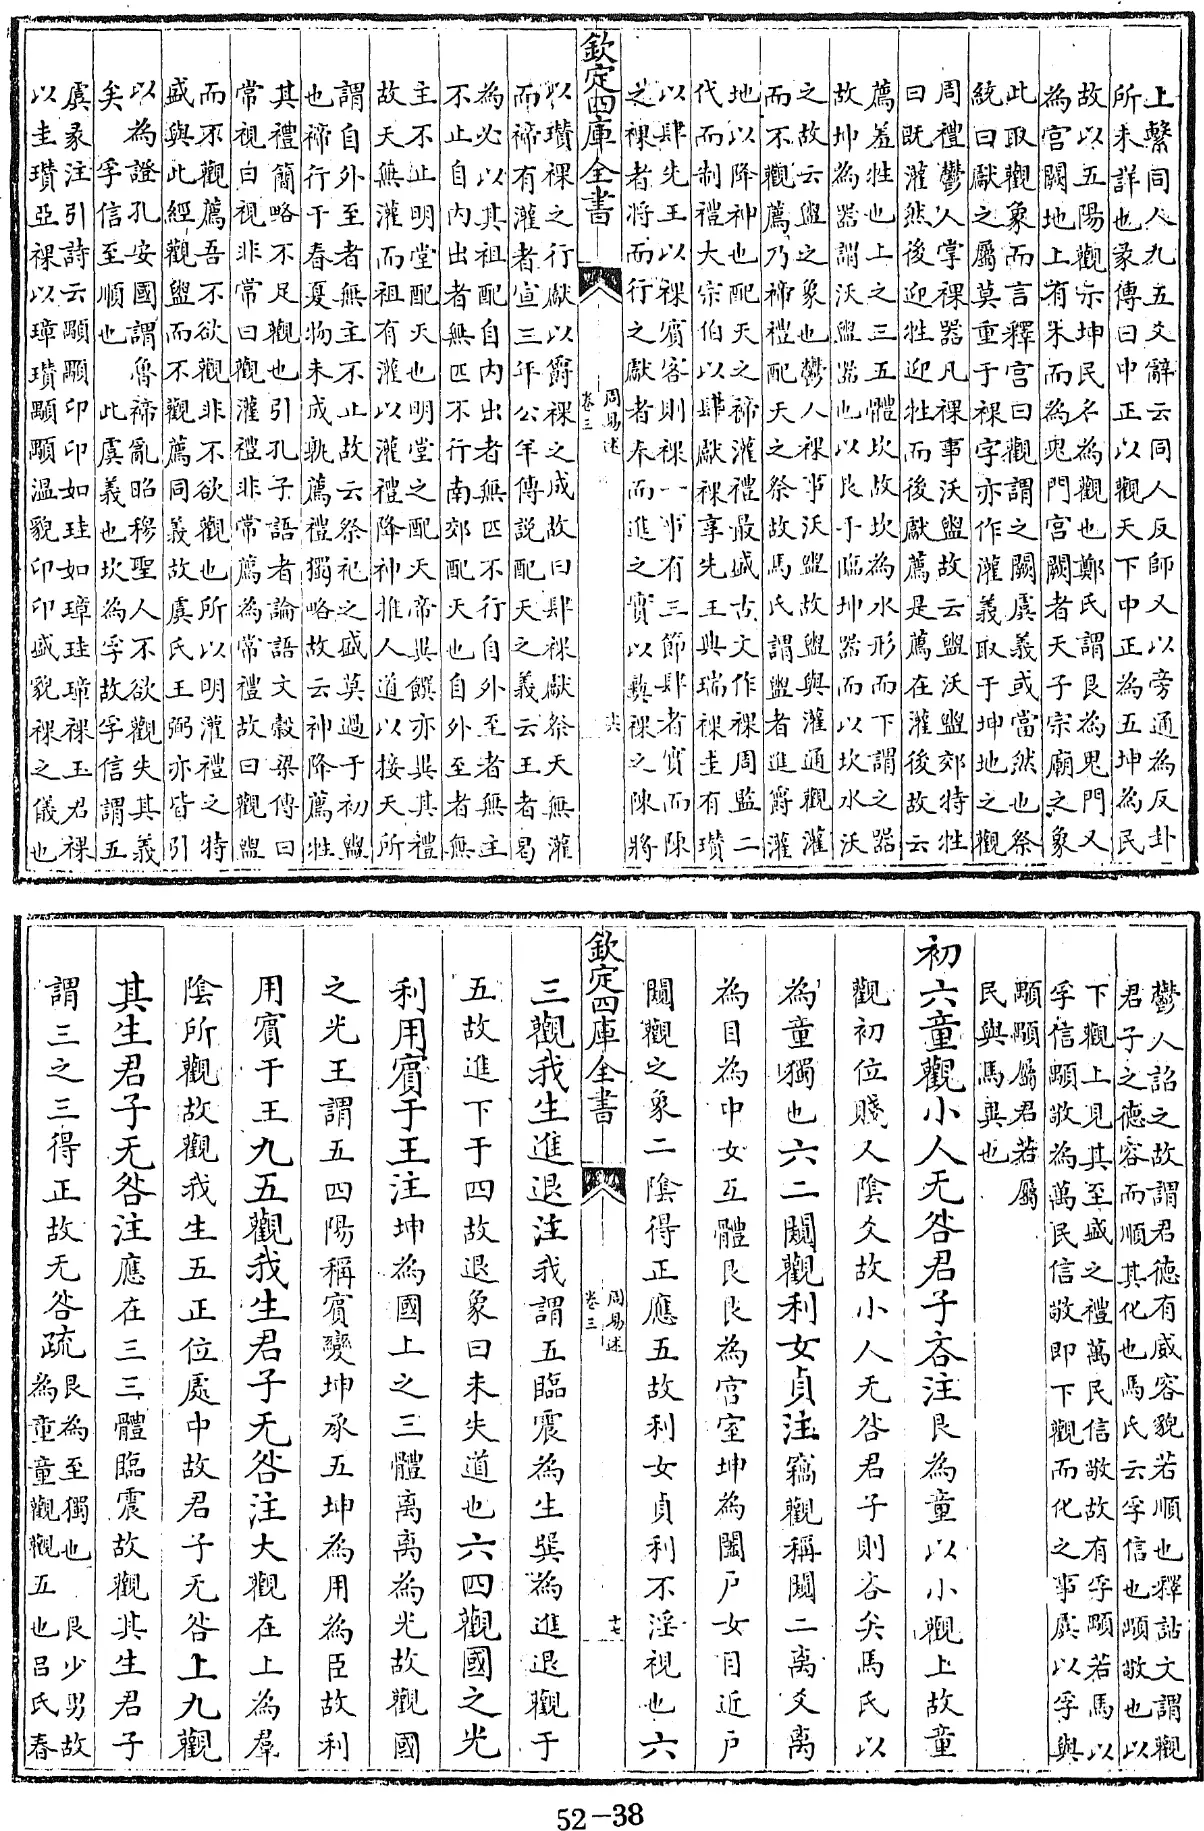 上繫同人九五爻辭云同人反師又以旁通為反卦
所未詳也彖傳曰中正以觀天下中正為五坤為民
故以五陽觀示坤民名為觀也鄭氏謂艮為鬼門又
為宫闕地上有木而為鬼門宫闕者天子宗廟之象
此取觀象而言釋宫曰觀謂之闕虞義或當然也祭
統曰獻之屬莫重于祼字亦作灌義取于坤地之觀
周禮鬱人掌祼器凡祼事沃盥故云盥沃盥郊特牲
曰既灌然後迎牲迎牲而後獻薦是薦在灌後故云
薦羞牲也上之三五體坎故坎為水形而下謂之器
故坤為器謂沃盥器也以艮手臨坤器而以坎水沃
之故云盥之象也鬱人祼事沃盥故盥與灌通觀灌
而不觀薦乃禘禮配天之祭故馬氏謂盥者進爵灌
地以降神也配天之禘灌禮最盛古文作祼周監二
代而制禮大宗伯以肆獻祼享先王典瑞祼圭有瓚
以肆先王以祼賓客則祼一事有三節肆者實而陳
之祼者將而行之獻者奉而進之實以彝祼之陳將
欽定四庫全書
周易述
卷三
十六
以瓚祼之行獻以爵祼之成故曰肆祼獻祭天無灌
而禘有灌者宣三年公羊傳説配天之義云王者曷
為必以其祖配自内出者無匹不行自外至者無主
不止自内出者無匹不行南郊配天也自外至者無
主不止明堂配天也明堂之配天帝異饌亦異其禮
故天無灌而祖有灌以灌禮降神推人道以接天所
謂自外至者無主不止故云祭祀之盛莫過于初盥
也禘行于春夏物未成孰薦禮獨略故云神降薦牲
其禮簡略不足觀也引孔子語者論語文穀梁傳曰
常視曰視非常曰觀灌禮非常薦為常禮故曰觀盥
而不觀薦吾不欲觀非不欲觀也所以明灌禮之特
盛與此經觀盥而不觀薦同義故虞氏王弼亦皆引
以為證孔安國謂魯禘亂昭穆聖人不欲觀失其義
矣 孚信至順也 此虞義也坎為孚故孚信謂五
虞彖注引詩云顒顒卬卬如珪如璋珪璋祼玉君祼
以圭瓚亞祼以璋瓚顒顒温貌卬卬盛貌祼之儀也
鬱人詔之故謂君德有威容貌若順也釋詁文謂觀
君子之德容而順其化也馬氏云孚信也顒敬也以
下觀上見其至盛之禮萬民信敬故有孚顒若馬以
孚信顒敬為萬民信敬即下觀而化之事虞以孚與
顒顒屬君若屬
民與馬異也
初六童觀小人无咎君子吝注艮為童以小觀上故童
觀初位賤人陰爻故小人无咎君子則吝矣馬氏以
為童獨也六二闚觀利女貞注竊觀稱闚二离爻离
為目為中女互體艮艮為宫室坤為闔戶女目近戶
闚觀之象二陰得正應五故利女貞利不淫視也六
欽定四庫全書
周易述
卷三
十七
三觀我生進退注我謂五臨震為生巽為進退觀于
五故進下于四故退象曰未失道也六四觀國之光
利用賓于王注坤為國上之三體离离為光故觀國
之光王謂五四陽稱賓變坤承五坤為用為臣故利
用賓于王九五觀我生君子无咎注大觀在上為羣
陰所觀故觀我生五正位處中故君子无咎上九觀
其生君子无咎注應在三三體臨震故觀其生君子
謂三之三得正故无咎疏
艮為至獨也 艮少男故
為童童觀觀五也吕氏春
52-38